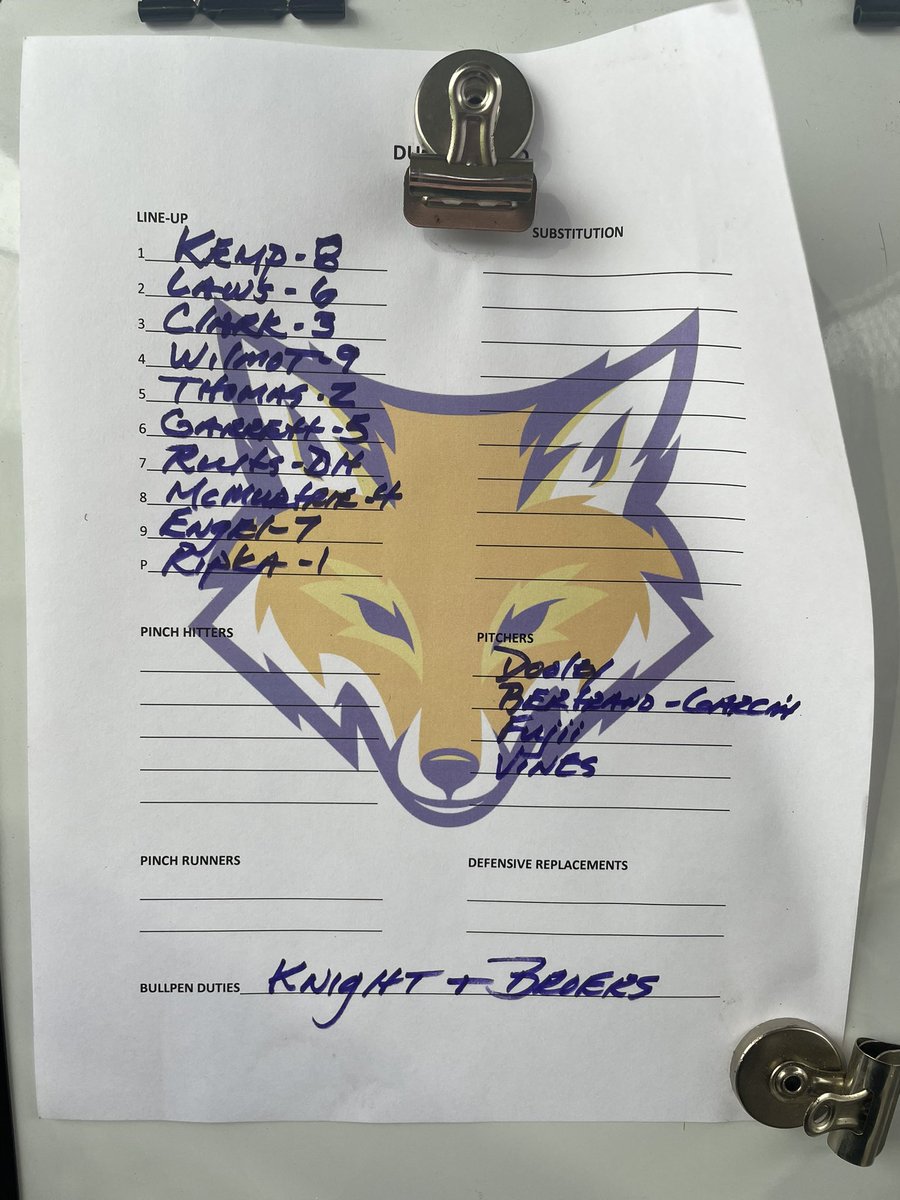 LINE-UP
SUBSTITUTION
1 KEMP - 8
2 LAWS - 6
3 CLARK - 3
4 WILMOT - 9
5 THOMAS - 2
6 GARRETT - 5
7 - DH
8 - 4
9 ENGEL - 7
P RIPKA - 1
PINCH HITTERS
PITCHERS
DOOLEY
BERTRAND - GARCIA
FUJII
VINES
PINCH RUNNERS
DEFENSIVE REPLACEMENTS
BULLPEN DUTIES KNIGHT + BROERS